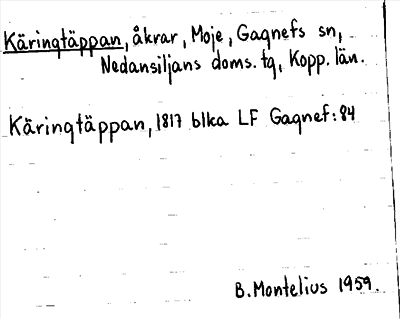 Käringtäppan, åkrar, Moje, Gagnefs sn,
Nedansiljans doms. tg, Kopp. län.
Käringtäppan, 1817 blka LF Gagnef: 84
B. Montelius 1959.